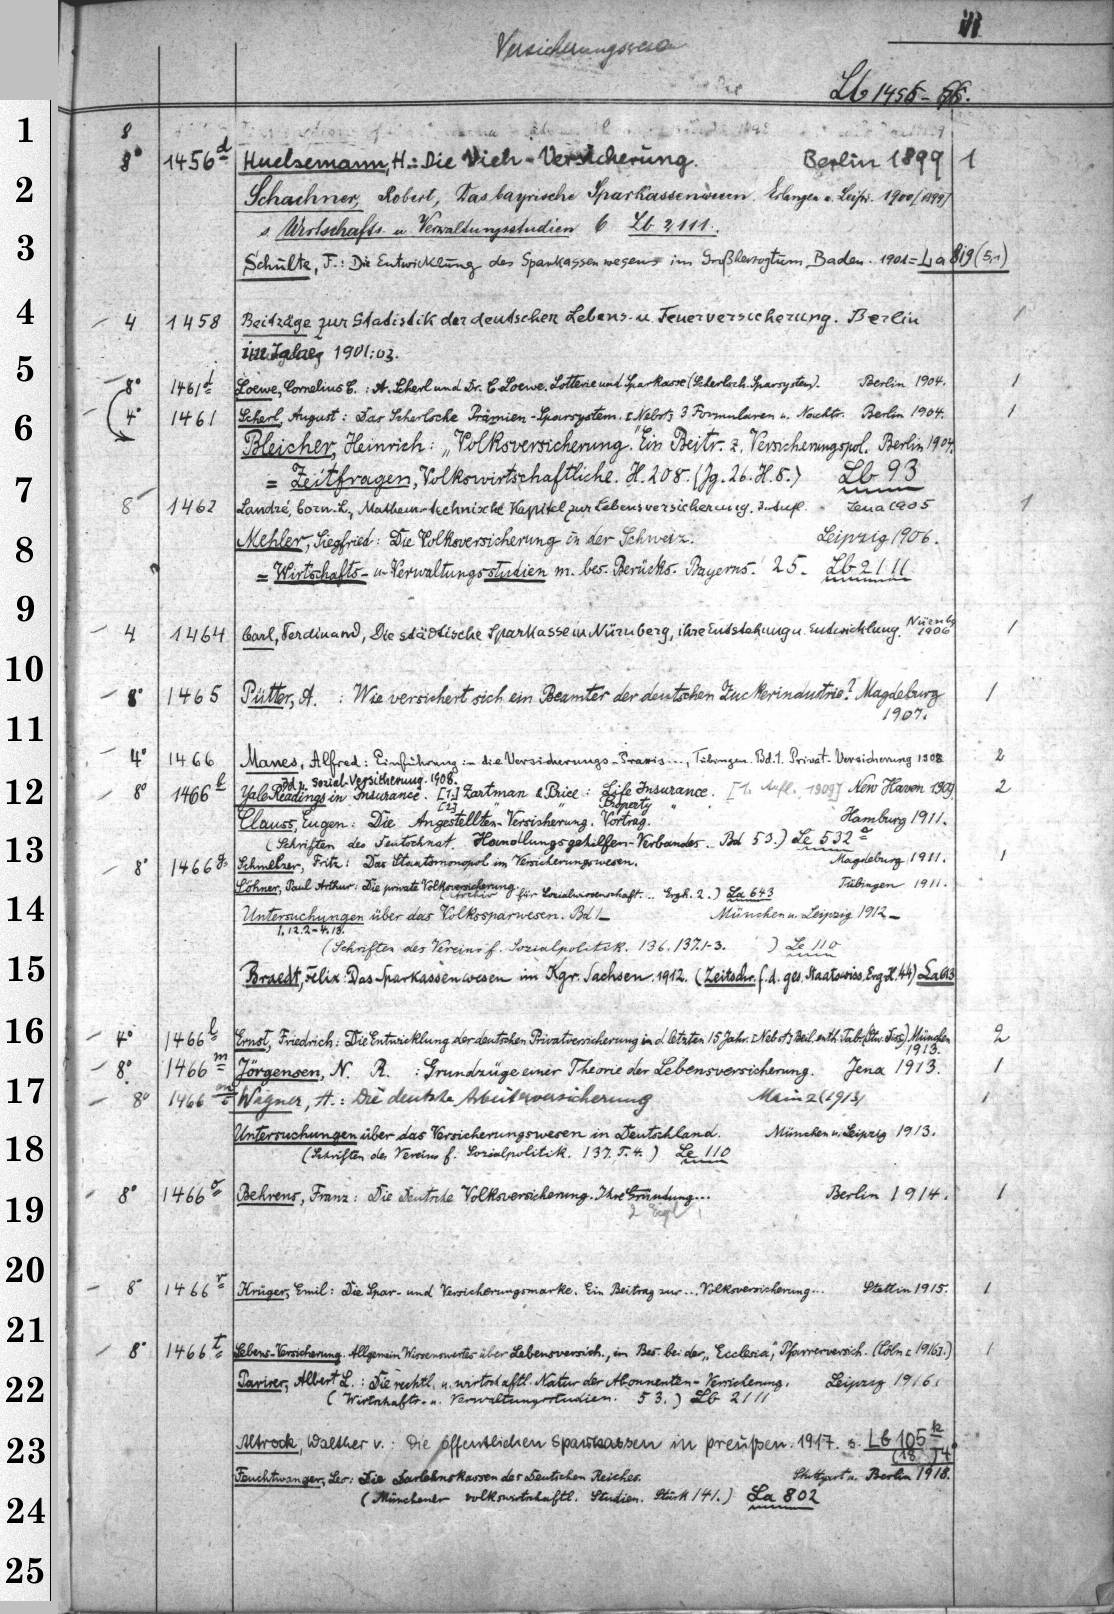 Versicherungswesen
Lb 1456-
1
8
8° 1456 d Huelsemann, H.: Die Vieh-Versicherung. Berlin 1899 1
2 Schachner, Robert, Das bayrische Sparkassenwesen. Erlangen u. Leipz. 1900/(1899)
s. Wirtschafts- u. Verwaltungsstudien 6 Lb 2111.
3 Schulte, F.: Die Entwicklung des Sparkassenwesens im Großherzogtum Baden. 1901 = La 819 (5,1)
4 – 4 1458 Beiträge zur Statistik der deutschen Lebens- u. Feuerversicherung. Berlin 1
1901:03.
5 8° 1461 d Loewe, Cornelius C.: A. Scherl und Dr. C. Loewe. Lotterie und Sparkasse (Scherlsch. Sparsystem). Berlin 1904. 1
4° 1461 Scherl, August: Das Scherlsche Prämien-Sparsystem. [Nebst] 3 Formularen u. Nachtr. Berlin 1904. 1
6 Bleicher, Heinrich: „Volksversicherung." Ein Beitr. z. Versicherungspol. Berlin 1904.
7 = Zeitfragen, Volkswirtschaftliche. H. 208. (Jg. 26. H. 8.) Lb 93
8 1462 Landré, Corn. L., Mathem.-technische Kapitel zur Lebensversicherung. 3. Aufl. Jena 1905 1
8 Mehler, Siegfried: Die Volksversicherung in der Schweiz. Leipzig 1906.
= Wirtschafts- u. Verwaltungsstudien m. bes. Berücks. Bayerns. 25. Lb 2111
9 – 4 1464 Carl, Ferdinand, Die städtische Sparkasse in Nürnberg, ihre Entstehung u. Entwicklung. Nürnbg 1906 1
10 – 8° 1465 Pütter, A. : Wie versichert sich ein Beamter der deutschen Zuckerindustrie? Magdeburg 1
11 1907.
– 4° 1466 Manes, Alfred: Einführung in die Versicherungs-Praxis..., Tübingen. Bd. 1. Privat-Versicherung 1908 2
Bd 2. Sozial-Versicherung. 1908.
12 – 8° 1466 Yale Readings in Insurance. [1.] Zartman & Price: Life Insurance. [1. Aufl. 1909] New Haven 1909. 2
[2.] " " Property "
Clauss, Eugen: Die Angestellten-Versicherung. Vortrag. Hamburg 1911.
13 (Schriften des Deutschnat. Handlungsgehilfen-Verbandes. Bd 53.) Le 532 a
– 8° 1466 g Schmelzer, Fritz: Das Staatsmonopol im Versicherungswesen. Magdeburg 1911. 1
Cohner, Paul Arthur: Die private Volksversicherung. Tübingen 1911.
(Archiv für Sozialwissenschaft... Ergh. 2.) La 643
14 Untersuchungen über das Volkssparwesen. Bd 1– München u. Leipzig 1912–
1. 12. 2–4. 13.
(Schriften des Vereins f. Sozialpolitik. 136. 137.1-3. ) Le 110
15 Braedt, Felix: Das Sparkassenwesen im Kgr. Sachsen. 1912. (Zeitschr. f. d. ges. Staatswiss. Erg.-H. 44) La 613
16 – 4° 1466 l Ernst, Friedrich: Die Entwicklung der deutschen Privatversicherung in d. letzten 15 Jahr. [Nebst] Beil. enth. Tab. (Stw. Diss.) München 1913. 2
– 8° 1466 m Jörgensen, N. R. : Grundzüge einer Theorie der Lebensversicherung. Jena 1913. 1
17 – 8° 1466 Wagner, A.: Die deutsche Arbeiterversicherung Mainz (1913) 1
18 Untersuchungen über das Versicherungswesen in Deutschland. München u. Leipzig 1913.
(Schriften des Vereins f. Sozialpolitik. 137. T. 4. ) Le 110
19 – 8° 1466 o Behrens, Franz: Die Deutsche Volksversicherung. Ihre Gründung... Berlin 1914. 1
20 – 8° 1466 r Krüger, Emil: Die Spar- und Versicherungsmarke. Ein Beitrag zur... Volksversicherung... Stettin 1915. 1
21 – 8° 1466 t Lebens-Versicherung. Allgemein Wissenswertes über Lebensversich., im Bes. bei der „Ecclesia", Pfarrerversich. (Cöln [1916].) 1
22 Pariser, Albert L.: Die rechtl. u. wirtschaftl. Natur der Abonnenten-Versicherung. Leipzig 1916.
(Wirtschafts- u. Verwaltungsstudien. 53.) Lb 2111
23 Altrock, Walther v.: Die öffentlichen Sparkassen in Preußen. 1917. s. Lb 105 k
(18.) 4°
Feuchtwanger, Leo: Die Darlehnskassen des Deutschen Reiches. Stuttgart u. Berlin 1918.
24 (Münchener volkswirtschaftl. Studien. Stück 141.) La 802
25